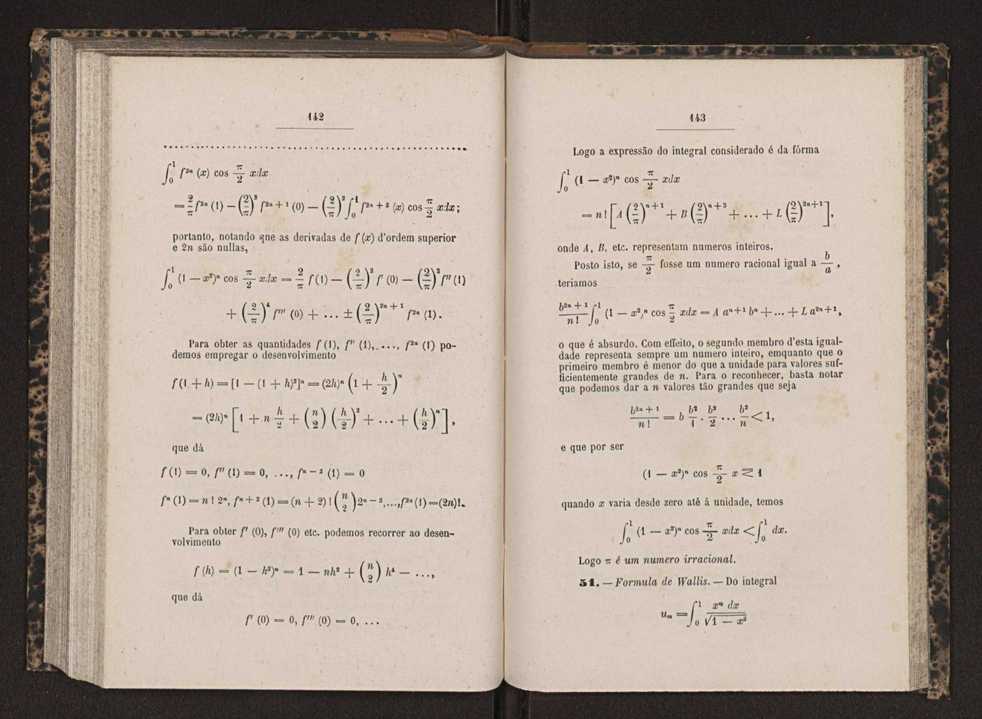 142
∫₀¹ f²ⁿ (x) cos π/2 xdx
= 2/π f²ⁿ (1) — (2/π)² f²ⁿ⁺¹ (0) — (2/π)² ∫₀¹ f²ⁿ⁺² (x) cos π/2 xdx;
portanto, notando que as derivadas de f (x) d'ordem superior
e 2n são nullas,
∫₀¹ (1 — x²)ⁿ cos π/2 xdx = 2/π f (1) — (2/π)² f' (0) — (2/π)³ f'' (1)
+ (2/π)⁴ f''' (0) + ... ± (2/π)²ⁿ⁺¹ f²ⁿ (1).
Para obter as quantidades f (1), f'' (1),..., f²ⁿ (1) po-
demos empregar o desenvolvimento
f (1 + h) = [1 — (1 + h)²]ⁿ = (2h)ⁿ (1 + h/2)ⁿ
= (2h)ⁿ [1 + n h/2 + (n/2) (h/2)² + ... + (h/2)ⁿ],
que dá
f (1) = 0, f'' (1) = 0, ..., fⁿ⁻² (1) = 0
fⁿ (1) = n ! 2ⁿ, fⁿ⁺² (1) = (n + 2) ! (n/2) 2ⁿ⁻²,..., f²ⁿ (1) = (2n)!.
Para obter f' (0), f''' (0) etc. podemos recorrer ao desen-
volvimento
f (h) = (1 — h²)ⁿ = 1 — nh² + (n/2) h⁴ — ...,
que dá
f' (0) = 0, f''' (0) = 0, ...
143
Logo a expressão do integral considerado é da fórma
∫₀¹ (1 — x²)ⁿ cos π/2 xdx
= n ! [A (2/π)ⁿ⁺¹ + B (2/π)ⁿ⁺³ + ... + L (2/π)²ⁿ⁺¹],
onde A, B, etc. representam numeros inteiros.
Posto isto, se π/2 fosse um numero racional igual a b/a,
teriamos
b²ⁿ⁺¹/n ! ∫₀¹ (1 — x²)ⁿ cos π/2 xdx = A aⁿ⁺¹ bⁿ + ... + L a²ⁿ⁺¹,
o que é absurdo. Com effeito, o segundo membro d'esta igual-
dade representa sempre um numero inteiro, emquanto que o
primeiro membro é menor do que a unidade para valores suf-
ficientemente grandes de n. Para o reconhecer, basta notar
que podemos dar a n valores tão grandes que seja
b²ⁿ⁺¹/n ! = b b²/1 . b²/2 ... b²/n < 1,
e que por ser
(1 — x²)ⁿ cos π/2 x ≶ 1
quando x varia desde zero até á unidade, temos
∫₀¹ (1 — x²)ⁿ cos π/2 xdx < ∫₀¹ dx.
Logo π é um numero irracional.
51. — Formula de Wallis. — Do integral
uₙ = ∫₀¹ xⁿ dx/√1 — x²